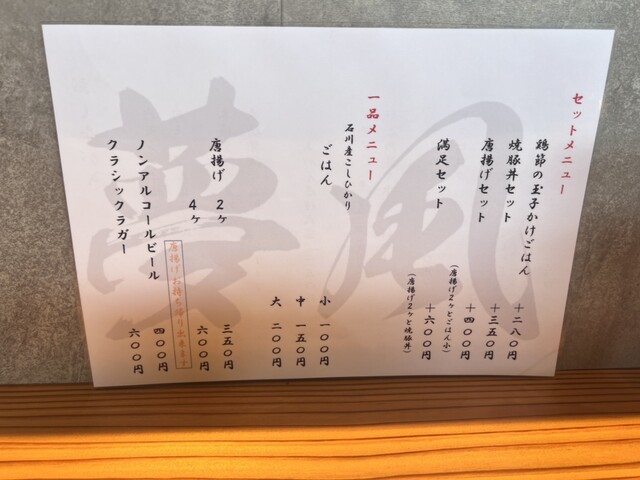 セットメニュー
鶏節の玉子かけごはん 十二八〇円
焼豚丼セット 十三五〇円
唐揚げセット 十四〇〇円
(唐揚げ2ヶとごはん小)
満足セット 十六〇〇円
(唐揚げ2ヶと焼豚丼)
一品メニュー
石川産こしひかり
ごはん
小 一〇〇円
中 一五〇円
大 二〇〇円
唐揚げ 2ヶ 三五〇円
4ヶ 六〇〇円
唐揚げお持ち帰り出来ます
ノンアルコールビール 四〇〇円
クラシックラガー 六〇〇円
夢風